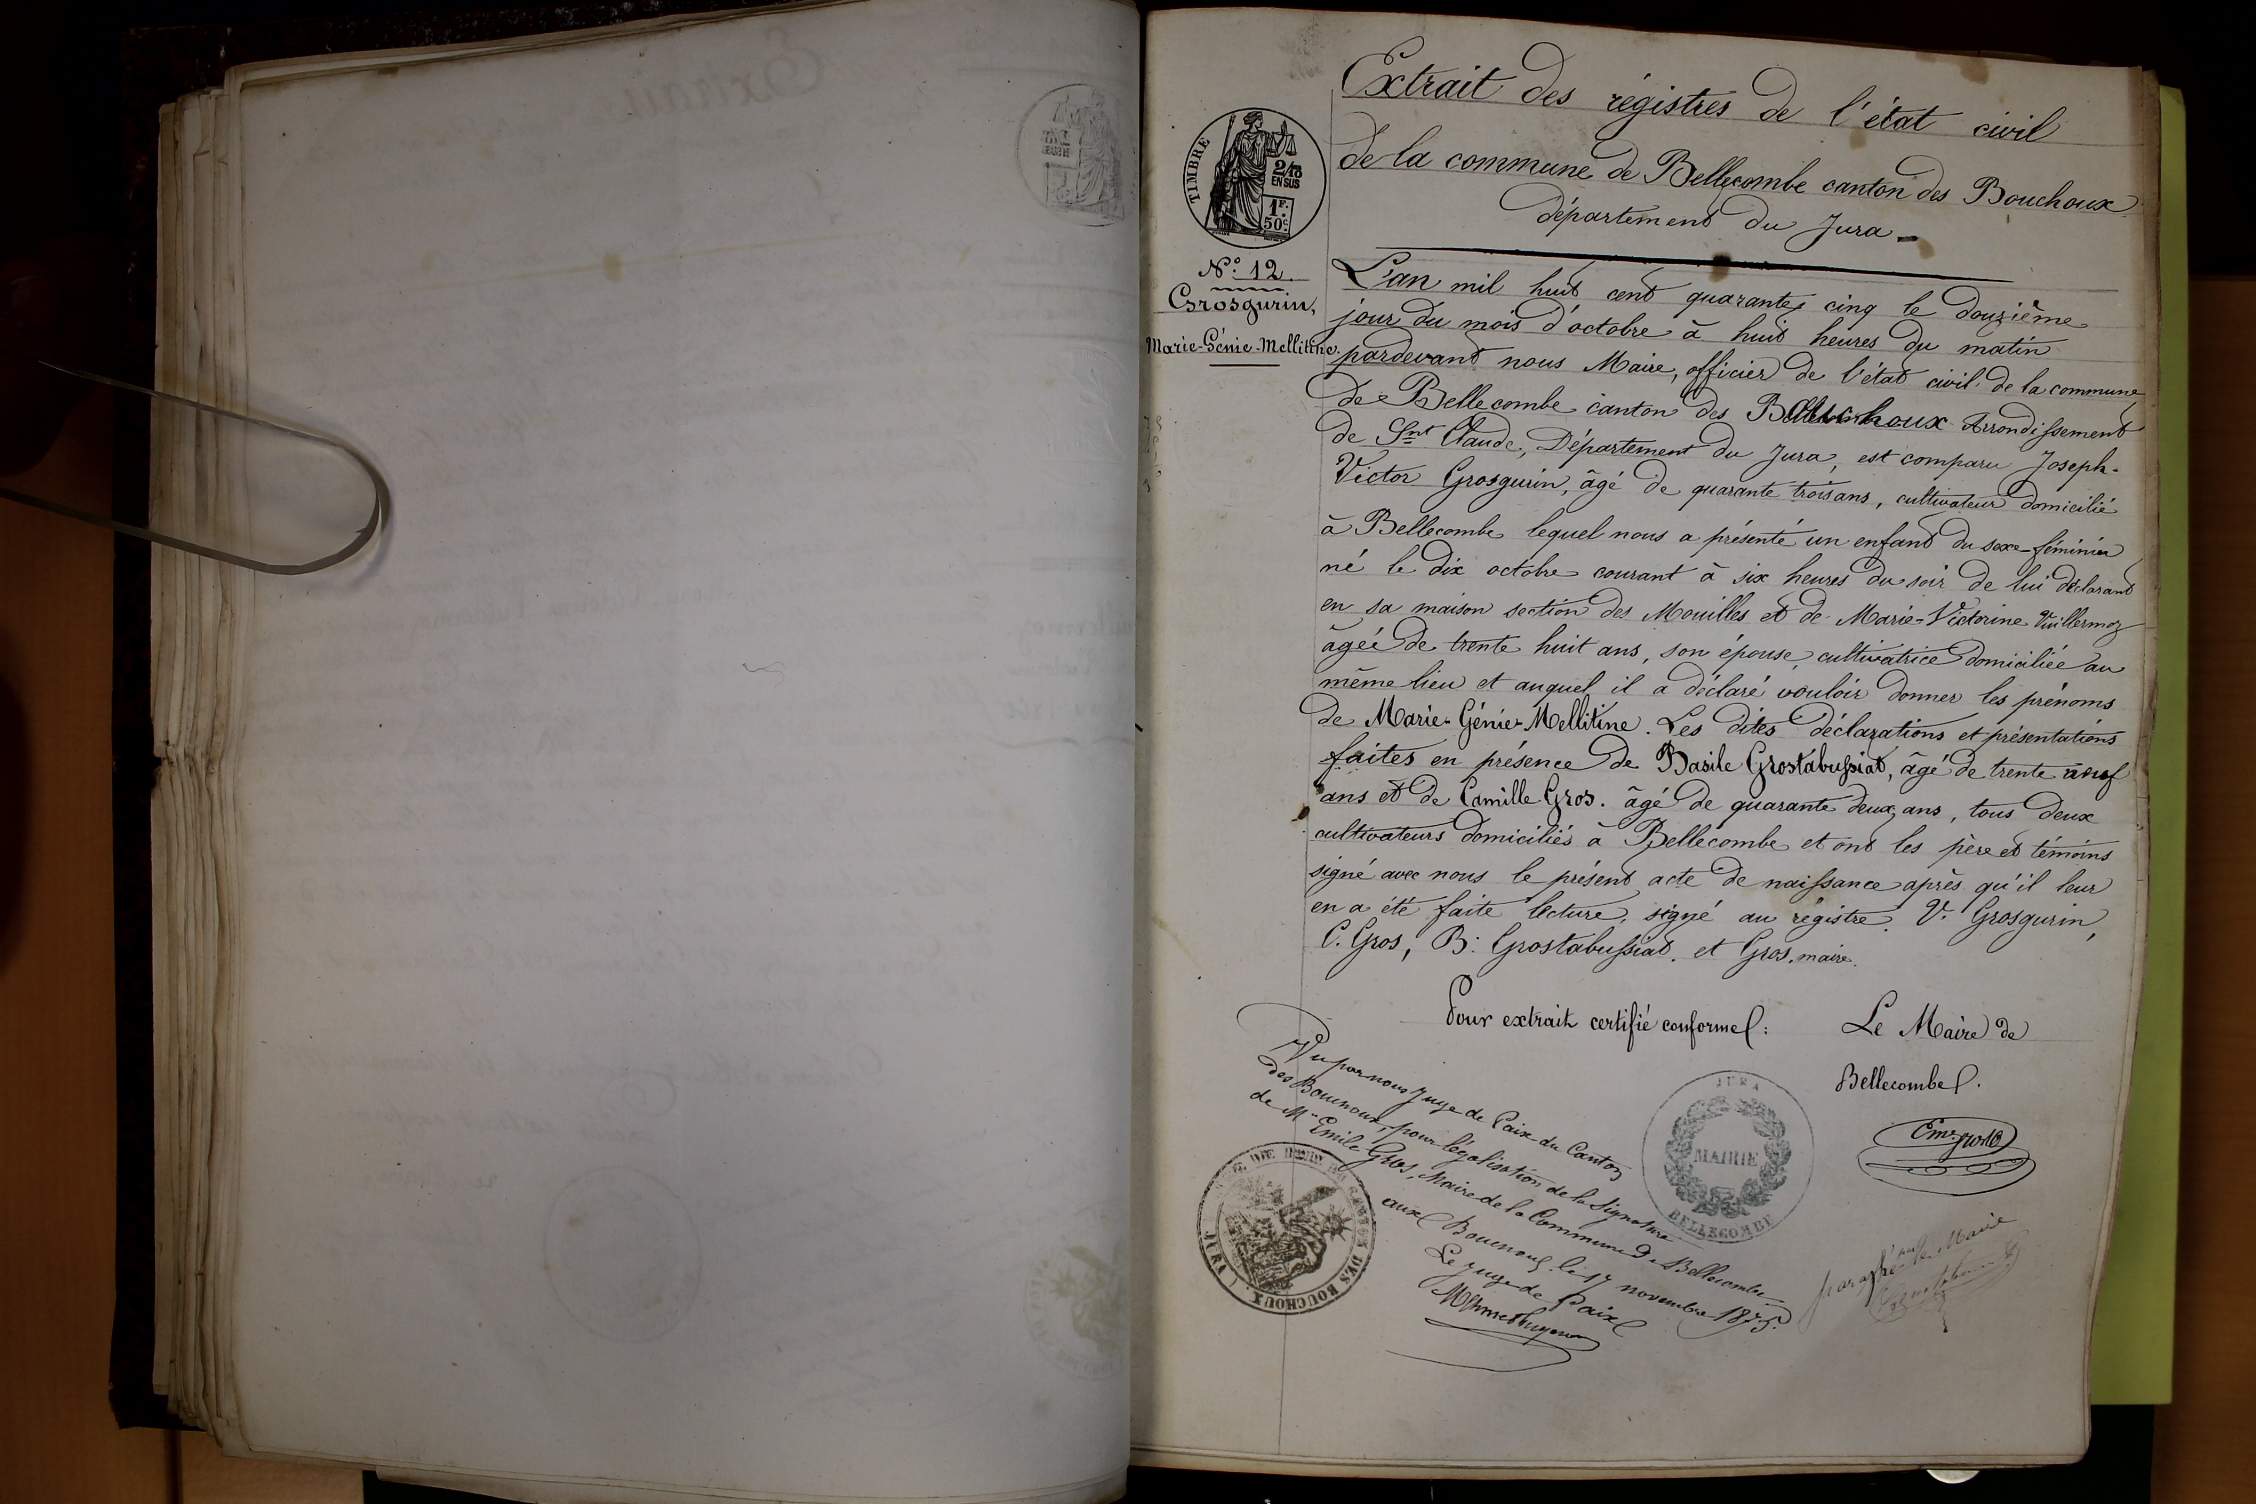 Extrait des régistres de l'état civil
de la commune de Bellecombe canton des Bouchoux
département du Jura
TIMBRE
2/10
EN SUS
1F.
50c.
N.º 12
Grosgurin,
Marie-Génie-Mellitine.
L'an mil huit cent quarante cinq le douzième
jour du mois d'octobre à huit heures du matin
pardevant nous Maire, officier de l'état civil de la commune
de Bellecombe canton des Bouchoux Arrondissement
de Snt Claude, Département du Jura, est comparu Joseph-
Victor Grosgurin, âgé de quarante trois ans, cultivateur domicilié
à Bellecombe lequel nous a présenté un enfant du sexe féminin
né le dix octobre courant à six heures du soir de lui déclarant
en sa maison section des Mouilles et de Marie-Victorine Vuillermoz
âgée de trente huit ans, son épouse, cultivatrice domiciliée au
même lieu et auquel il a déclaré vouloir donner les prénoms
de Marie-Génie-Mellitine. Les dites déclarations et présentations
faites en présence de Basile Grostabussiat, âgé de trente neuf
ans et de Camille Gros. âgé de quarante deux ans, tous deux
cultivateurs domiciliés à Bellecombe et ont les père et témoins
signé avec nous le présent acte de naissance après qu'il leur
en a été faite lecture, signé au régistre. V. Grosgurin,
C. Gros, B. Grostabussiat. et Gros, maire.
Pour extrait certifié conforme: Le Maire de
Bellecombe.
Vu par nous Juge de Paix du Canton
des Bouchoux, pour légalisation de la signature
de Mr Emile Gros, Maire de la Commune de Bellecombe
aux Bouchoux le 17 novembre 1875.
Le Juge de Paix
JURA
MAIRIE
BELLECOMBE
CANTON DES BOUCHOUX
JURA